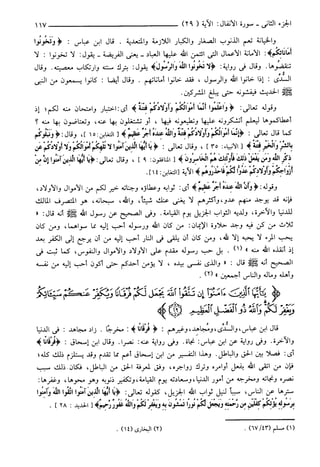 الجزء الثاني - سورة الأنفال: الآية ( ٢٩ ) ١١٧
والخيانة تعم الذنوب الصغار والكبار اللازمة والمتعدية . قال ابن عباس : ﴿ وَتَخُونُوا
أَمَانَاتِكُمْ ﴾: الأمانة الأعمال التي ائتمن الله عليها العباد - يعني الفريضة - يقول: لا تخونوا: لا
تنقضوها. وقال في رواية: ﴿ لَا تَخُونُوا اللَّهَ وَالرَّسُولَ ﴾ يقول: بترك سنته وارتكاب معصيته. وقال
السُّدِّي : إذا خانوا الله والرسول ، فقد خانوا أماناتهم . وقال أيضا : كانوا يسمعون من النبي
الحديث فيفشونه حتى يبلغ المشركين.
وقوله تعالى: ﴿ وَاعْلَمُوا أَنَّمَا أَمْوَالُكُمْ وَأَوْلَادُكُمْ فِتْنَةٌ ﴾ أي: اختبار وامتحان منه لكم؛ إذ
أعطاكموها ليعلم أتشكرونه عليها وتطيعونه فيها ، أو تشتغلون بها عنه ، وتعتاضون بها منه ؟
كما قال تعالى : ﴿ إِنَّمَا أَمْوَالُكُمْ وَأَوْلَادُكُمْ فِتْنَةٌ وَاللَّهُ عِندَهُ أَجْرٌ عَظِيمٌ ﴾ [التغابن: ١٥]، وقال: ﴿ وَنَبْلُوكُم
بِالشَّرِّ وَالْخَيْرِ فِتْنَةً ﴾ [الأنبياء: ٣٥] ، وقال تعالى : ﴿ يَا أَيُّهَا الَّذِينَ آمَنُوا لَا تُلْهِكُمْ أَمْوَالُكُمْ وَلَا أَوْلَادُكُمْ عَن
ذِكْرِ اللَّهِ وَمَن يَفْعَلْ ذَٰلِكَ فَأُولَٰئِكَ هُمُ الْخَاسِرُونَ ﴾ [المنافقون: ٩] ، وقال تعالى: ﴿ يَا أَيُّهَا الَّذِينَ آمَنُوا إِنَّ مِنْ
أَزْوَاجِكُمْ وَأَوْلَادِكُمْ عَدُوًّا لَّكُمْ فَاحْذَرُوهُمْ ﴾ الآية [التغابن: ١٤].
وقوله: ﴿ وَأَنَّ اللَّهَ عِندَهُ أَجْرٌ عَظِيمٌ ﴾ أي: ثوابه وعطاؤه وجناته خير لكم من الأموال والأولاد،
فإنه قد يوجد منهم عدو، وأكثرهم لا يغني عنك شيئاً، والله، سبحانه، هو المتصرف المالك
للدنيا والآخرة، ولديه الثواب الجزيل يوم القيامة. وفي الصحيح عن رسول الله ﷺ أنه قال: «
ثلاث من كن فيه وجد حلاوة الإيمان: من كان الله ورسوله أحب إليه مما سواهما، ومن كان
يحب المرء لا يحبه إلا لله، ومن كان أن يلقى في النار أحب إليه من أن يرجع إلى الكفر بعد
إذ أنقذه الله منه » (١) . بل حب رسوله مقدم على الأولاد والأموال والنفوس، كما ثبت في
الصحيح أنه ﷺ قال: « والذي نفسي بيده ، لا يؤمن أحدكم حتى أكون أحب إليه من نفسه
وأهله وماله والناس أجمعين » (٢) .
﴿ يَا أَيُّهَا الَّذِينَ آمَنُوا إِن تَتَّقُوا اللَّهَ يَجْعَل لَّكُمْ فُرْقَانًا وَيُكَفِّرْ عَنكُمْ سَيِّئَاتِكُمْ
وَيَغْفِرْ لَكُمْ وَاللَّهُ ذُو الْفَضْلِ الْعَظِيمِ ﴾
قال ابن عباس، والسُّدِّي، ومُجاهد، وغيرهم : ﴿ فُرْقَانًا ﴾ : مخرجًا . زاد مجاهد : في الدنيا
والآخرة. وفي رواية عن ابن عباس: نجاة. وفي رواية عنه: نصرا. وقال ابن إسحاق: ﴿ فُرْقَانًا ﴾
أي: فصلا بين الحق والباطل. وهذا التفسير من ابن إسحاق أعم مما تقدم وقد يستلزم ذلك كله؛
فإن من اتقى الله بفعل أوامره وترك زواجره، وفق لمعرفة الحق من الباطل، فكان ذلك سبب
نصره ونجاته ومخرجه من أمور الدنيا، وسعادته يوم القيامة، وتكفير ذنوبه وهو محوها، وغفرها:
سترها عن الناس، سبباً لنيل ثواب الله الجزيل، كقوله تعالى: ﴿ يَا أَيُّهَا الَّذِينَ آمَنُوا اتَّقُوا اللَّهَ وَآمِنُوا
بِرَسُولِهِ يُؤْتِكُمْ كِفْلَيْنِ مِن رَّحْمَتِهِ وَيَجْعَل لَّكُمْ نُورًا تَمْشُونَ بِهِ وَيَغْفِرْ لَكُمْ وَاللَّهُ غَفُورٌ رَّحِيمٌ ﴾ [الحديد: ٢٨] .
(١) مسلم (٤٣/ ٦٧) . (٢) البخاري (١٤) .